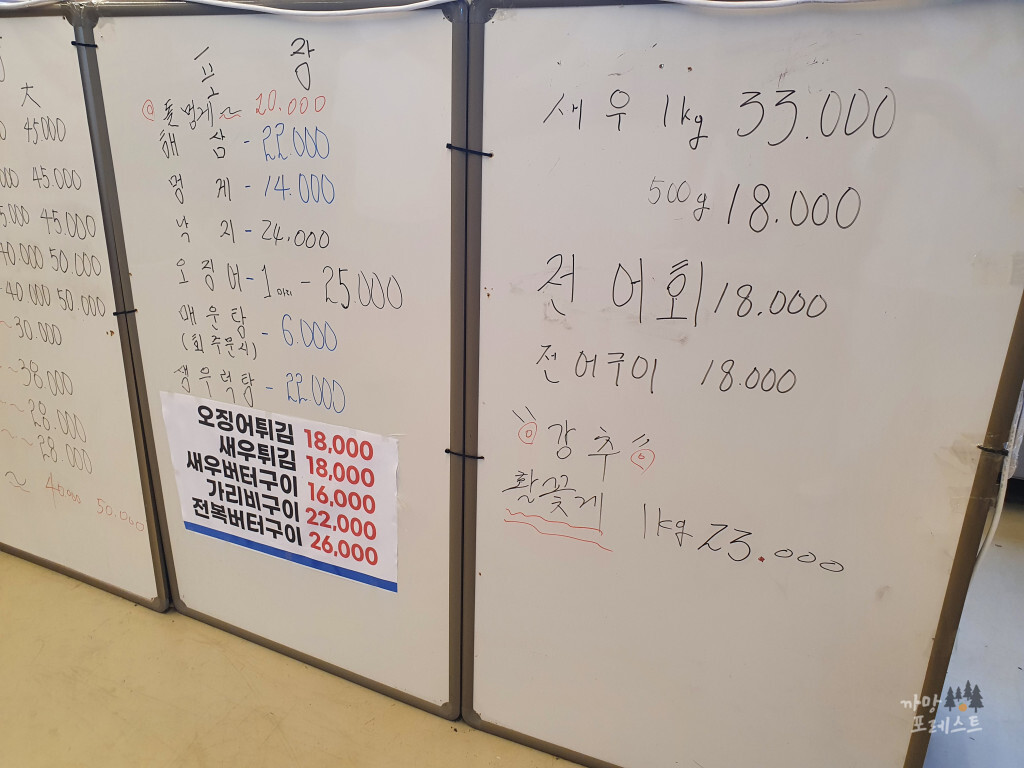 大
45.000
45.000
45.000
40.000 50.000
40.000 50.000
~30.000
~38.000
~28.000
~38.000
50.000
광
돌멍게 ~ 20.000
해삼 - 22.000
멍게 - 14.000
낙지 - 24.000
오징어 - 1마리 - 25.000
매운탕
(회주문시) - 6.000
생우럭탕 - 22.000
오징어튀김 18,000
새우튀김 18,000
새우버터구이 16,000
가리비구이 22,000
전복버터구이 26,000
새우 1kg 33.000
500g 18.000
전어회 18.000
전어구이 18.000
강추
활꽃게 1kg 23.000
까망
포레스트